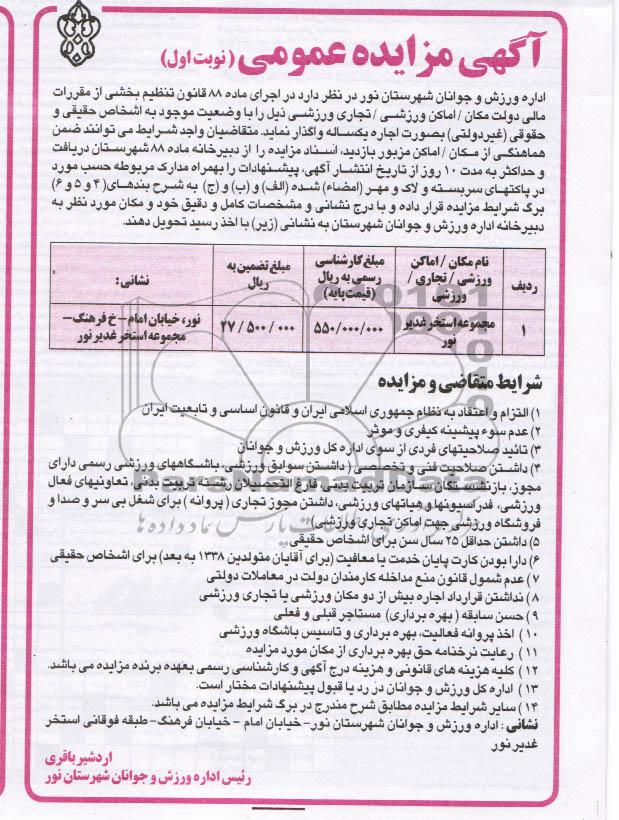 آگهی مزایده عمومی (نوبت اول)
اداره ورزش و جوانان شهرستان نور در نظر دارد در اجرای ماده ۸۸ قانون تنظیم بخشی از مقررات
مالی دولت مکان / اماکن ورزشی / تجاری ورزشی ذیل را با وضعیت موجود به اشخاص حقیقی و
حقوقی (غیردولتی) بصورت اجاره یکساله واگذار نماید. متقاضیان واجد شرایط می توانند ضمن
هماهنگی از مکان / اماکن مزبور بازدید، اسناد مزایده را از دبیرخانه ماده ۸۸ شهرستان دریافت
و حداکثر به مدت ۱۰ روز از تاریخ انتشار آگهی، پیشنهادات را بهمراه مدارک مربوطه حسب مورد
در پاکتهای سربسته و لاک و مهر (امضاء) شده (الف) و (ب) و (ج) به شرح بندهای (۴ و ۵ و ۶)
برگ شرایط مزایده قرار داده و با درج نشانی و مشخصات کامل و دقیق خود و مکان مورد نظر به
دبیرخانه اداره ورزش و جوانان شهرستان به نشانی (زیر) با اخذ رسید تحویل دهند.
ردیف
نام مکان / اماکن
ورزشی / تجاری /
ورزشی
مبلغ کارشناسی
رسمی به ریال
(قیمت پایه)
مبلغ تضمین به
ریال
نشانی:
۱
مجموعه استخر غدیر
نور
۵۵۰/۰۰۰/۰۰۰
۲۷ / ۵۰۰ / ۰۰۰
نور، خیابان امام – خ فرهنگ –
مجموعه استخر غدیر نور
شرایط متقاضی و مزایده
۱) التزام و اعتقاد به نظام جمهوری اسلامی ایران و قانون اساسی و تابعیت ایران
۲) عدم سوء پیشینه کیفری و موثر
۳) تائید صلاحیتهای فردی از سوی اداره کل ورزش و جوانان
۴) داشتن صلاحیت فنی و تخصصی ( داشتن سوابق ورزشی، باشگاههای ورزشی رسمی دارای
مجوز، بازنشستگان سازمان تربیت بدنی، فارغ التحصیلان رشته تربیت بدنی، تعاونیهای فعال
ورزشی، فدراسیونها و هیاتهای ورزشی، داشتن مجوز تجاری ( پروانه ) برای شغل بی سر و صدا و
فروشگاه ورزشی جهت اماکن تجاری ورزشی)
۵) داشتن حداقل ۲۵ سال سن برای اشخاص حقیقی
۶) دارا بودن کارت پایان خدمت یا معافیت (برای آقایان متولدین ۱۳۳۸ به بعد) برای اشخاص حقیقی
۷) عدم شمول قانون منع مداخله کارمندان دولت در معاملات دولتی
۸) نداشتن قرارداد اجاره بیش از دو مکان ورزشی یا تجاری ورزشی
۹) حسن سابقه ( بهره برداری) مستاجر قبلی و فعلی
۱۰) اخذ پروانه فعالیت، بهره برداری و تاسیس باشگاه ورزشی
۱۱) رعایت نرخنامه حق بهره برداری از مکان مورد مزایده
۱۲) کلیه هزینه های قانونی و هزینه درج آگهی و کارشناسی رسمی بعهده برنده مزایده می باشد.
۱۳) اداره کل ورزش و جوانان در رد یا قبول پیشنهادات مختار است.
۱۴) سایر شرایط مزایده مطابق شرح مندرج در برگ شرایط مزایده می باشد.
نشانی : اداره ورزش و جوانان شهرستان نور- خیابان امام - خیابان فرهنگ- طبقه فوقانی استخر
غدیر نور
اردشیر باقری
رئیس اداره ورزش و جوانان شهرستان نور